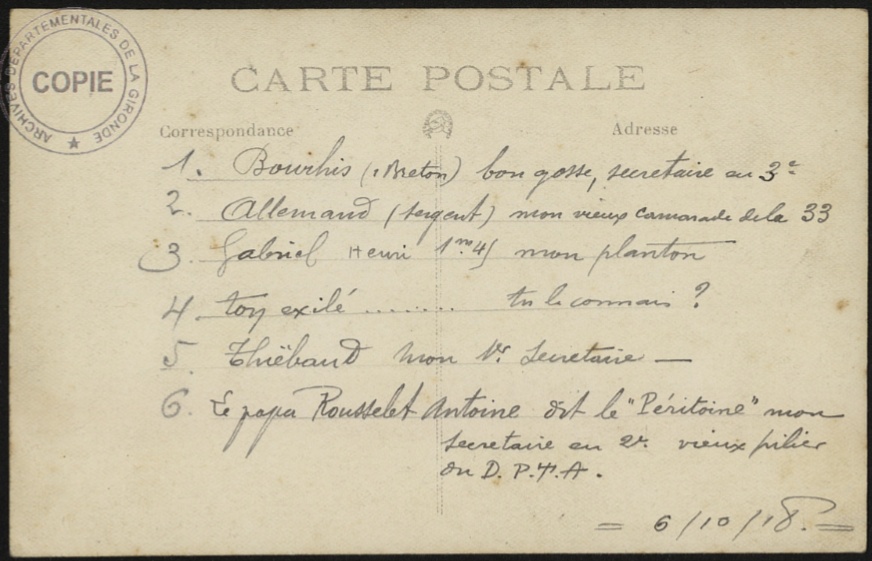 ARCHIVES DÉPARTEMENTALES DE LA GIRONDE
COPIE
CARTE POSTALE
Correspondance
Adresse
1. Bourhis (Breton) bon gosse, secretaire en 3e
2. Allemand (sergent) mon vieux camarade de la 33
3. Gabriel Henri 1m45 mon planton
4. toy exilé ........ tu le connais ?
5. Thiëbaud mon 1er Secretaire —
6. Le papa Rousselet Antoine dit le "Péritoine" mon
secretaire en 2e vieux pilier
du D.P.T.A.
= 6/10/18. =